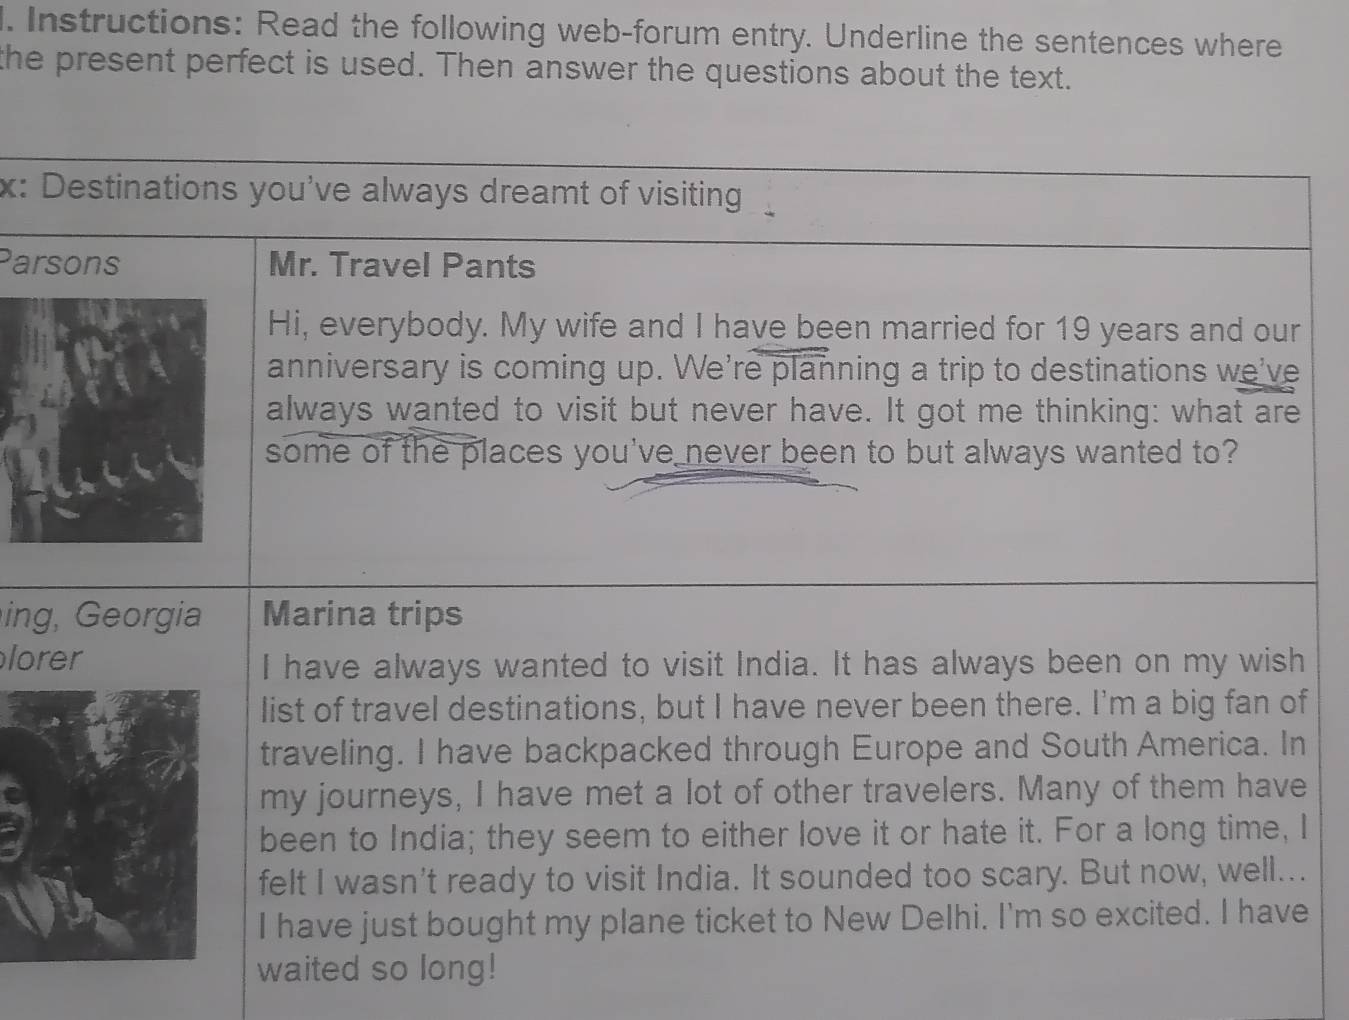 . Instructions: Read the following web-forum entry. Underline the sentences where
the present perfect is used. Then answer the questions about the text.
x: Destinations you've always dreamt of visiting
Parsons
Mr. Travel Pants
Hi, everybody. My wife and I have been married for 19 years and our
anniversary is coming up. We're planning a trip to destinations we've
always wanted to visit but never have. It got me thinking: what are
some of the places you've never been to but always wanted to?
ing, Georgia
lorer
Marina trips
I have always wanted to visit India. It has always been on my wish
list of travel destinations, but I have never been there. I'm a big fan of
traveling. I have backpacked through Europe and South America. In
my journeys, I have met a lot of other travelers. Many of them have
been to India; they seem to either love it or hate it. For a long time, I
felt I wasn't ready to visit India. It sounded too scary. But now, well...
I have just bought my plane ticket to New Delhi. I'm so excited. I have
waited so long!